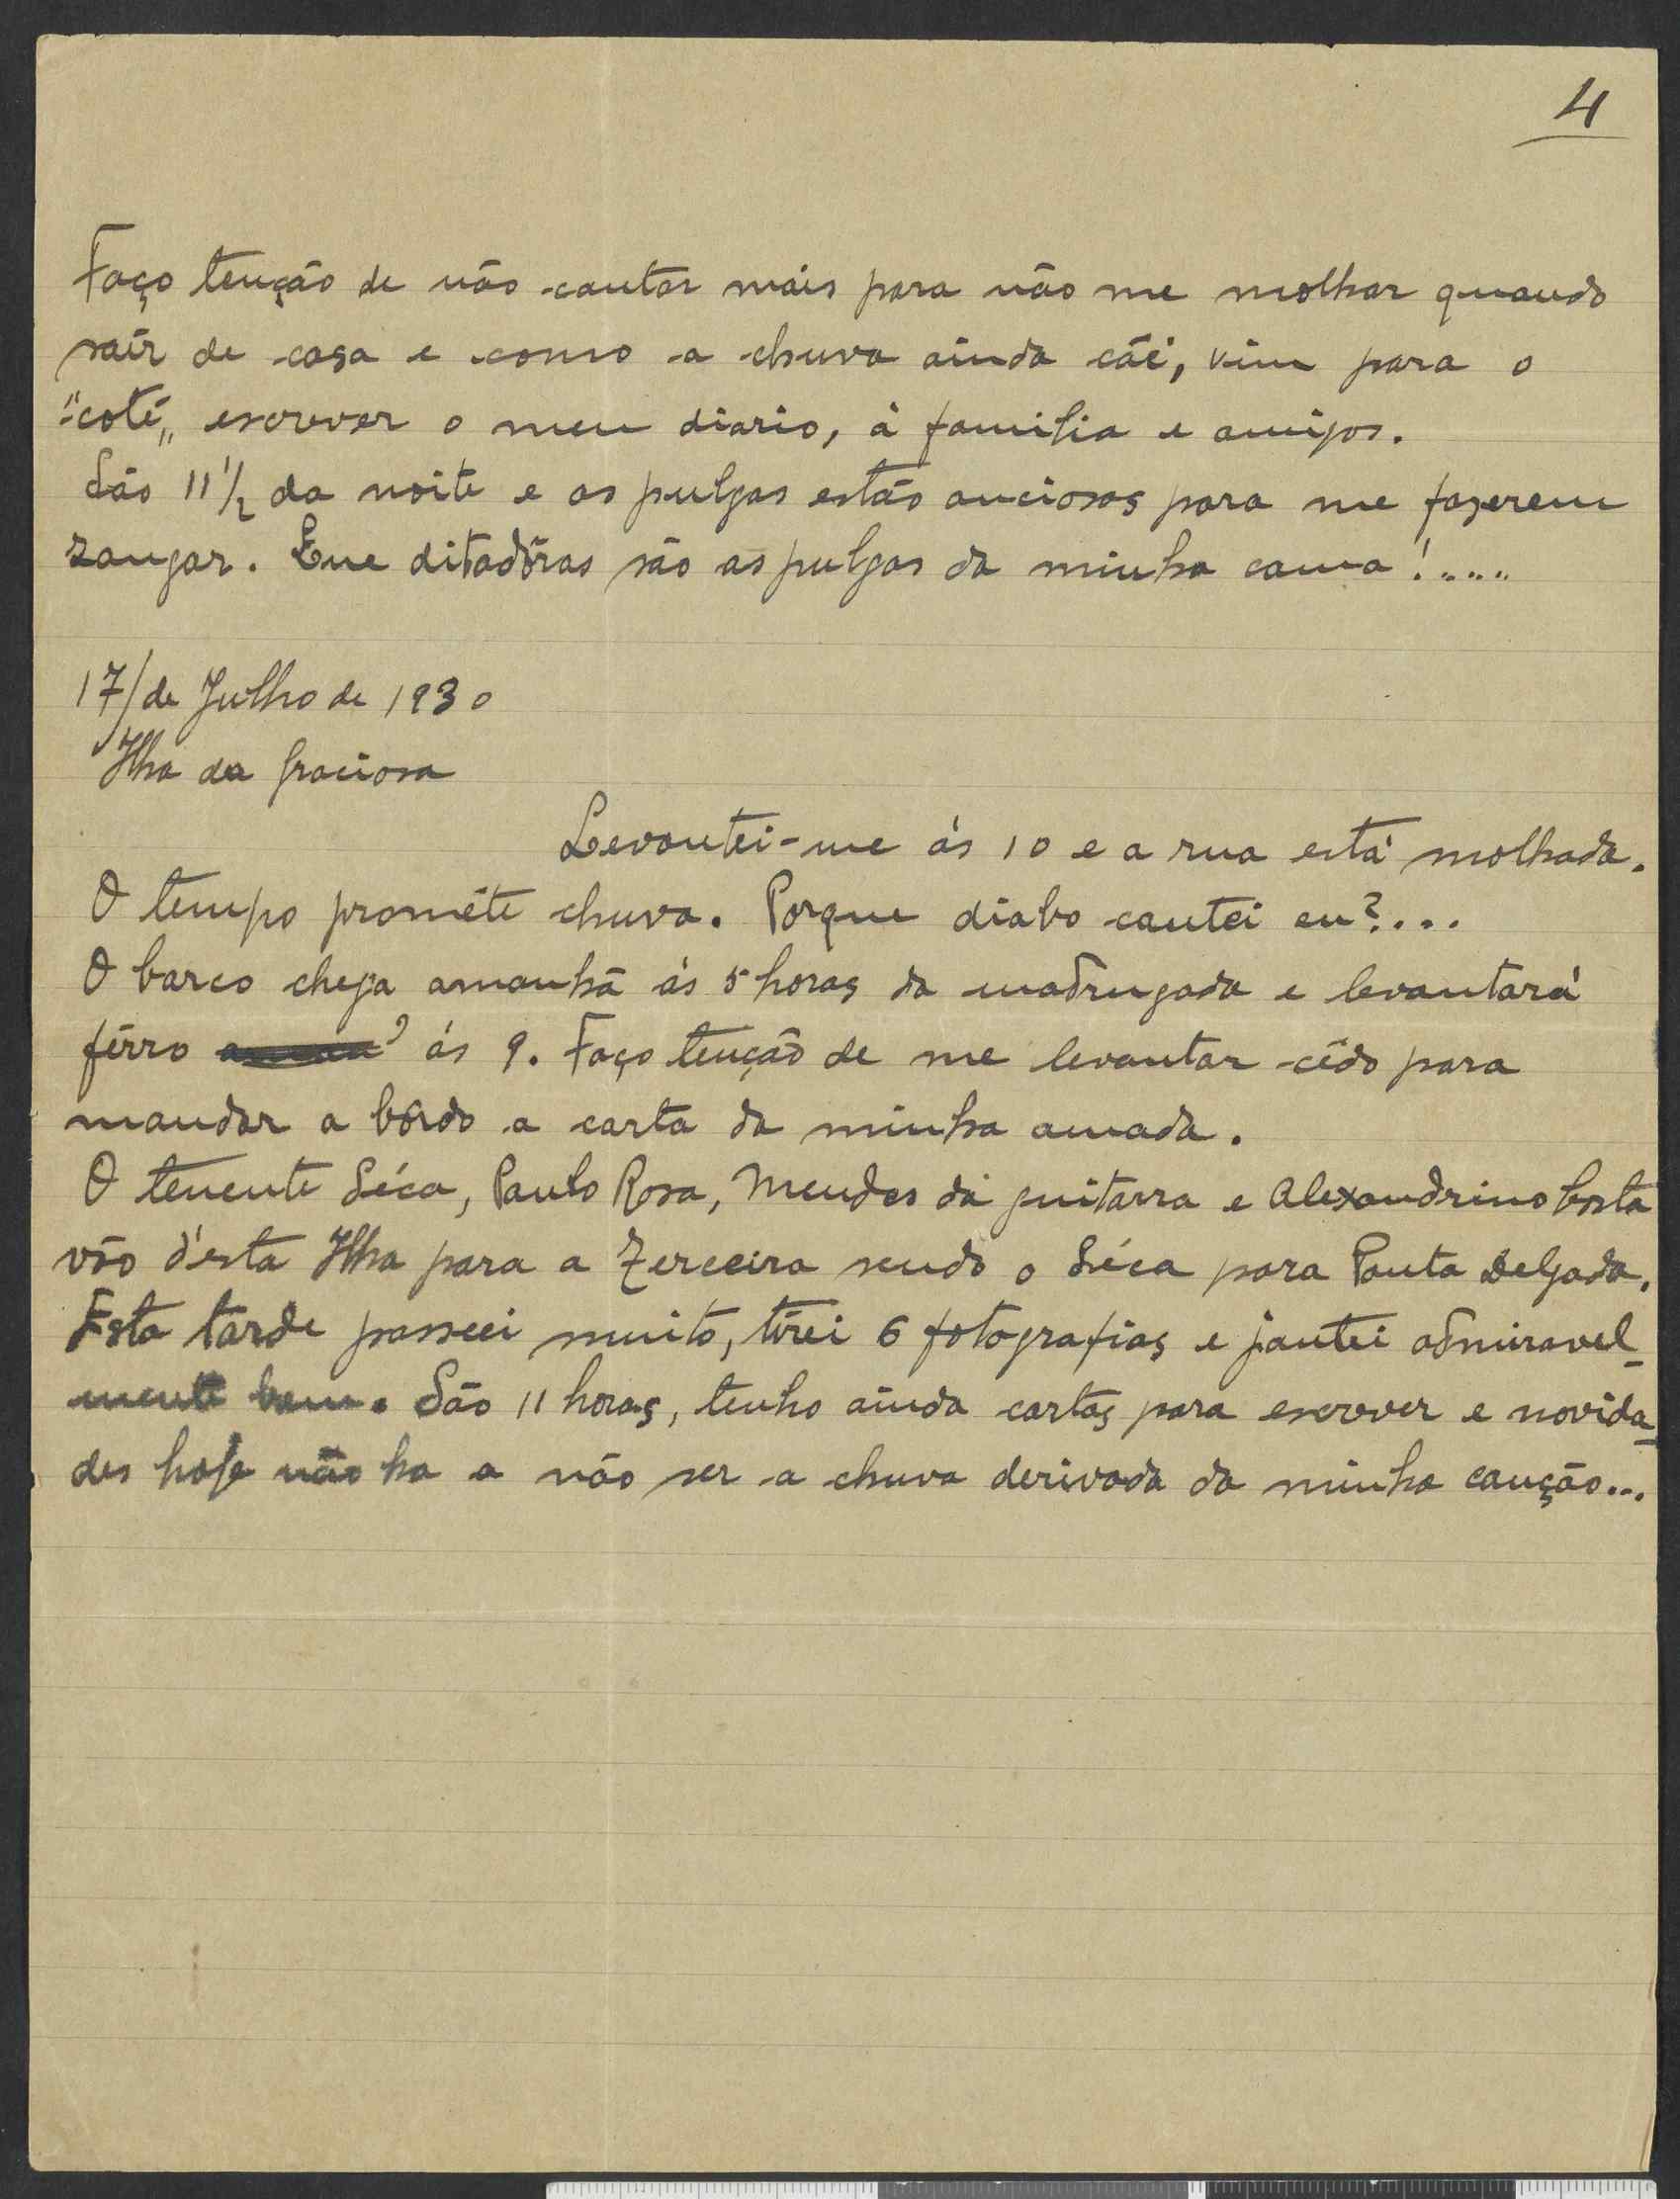 4
Faço tenção de não cantar mais para não me molhar quando
saír de casa e como a chuva ainda cái, vim para o
"coté„ escrever o meu diario, à familia e amigos.
São 11 1/2 da noite e as pulgas estão anciosas para me fazerem
zangar. Que ditadôras são as pulgas da minha cama!....
17/de Julho de 1930
Ilha da Graciosa
Levantei-me ás 10 e a rua está molhada.
O tempo prométe chuva. Porque diabo cantei eu?...
O barco chega amanhã ás 5 horas da madrugada e levantará
férro ás 9. Faço tenção de me levantar cêdo para
mandar a bórdo a carta da minha amada.
O tenente Séca, Paulo Rosa, Mendes da guitarra e Alexandrino Costa
vão d'esta Ilha para a Terceira sendo o Séca para Ponta Delgada.
Esta tarde passeei muito, tirei 6 fotografias e jantei admiravel-
mente bem. São 11 horas, tenho ainda cartas para escrever e novida-
des hoje não ha a não ser a chuva derivada da minha canção...